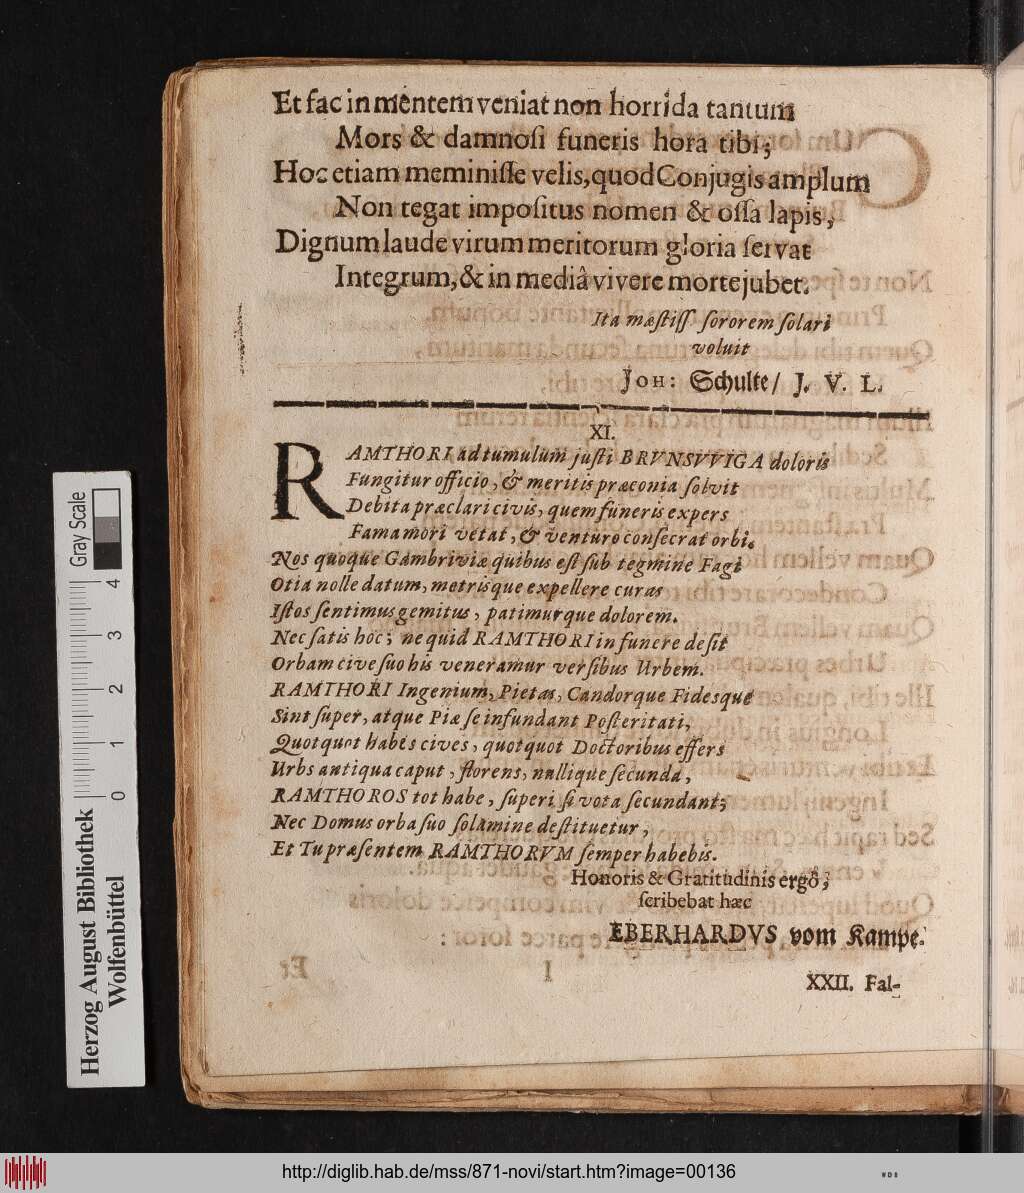 Et fac in mentem veniat non horrida tantum
Mors & damnoſi funeris hora tibi;
Hoc etiam meminiſſe velis, quod Conjugis amplum
Non tegat impoſitus nomen & oſſa lapis,
Dignum laude virum meritorum gloria ſervat
Integrum, & in mediâ vivere morte jubet.
Ita mæſtiſſ ſororem ſolari
voluit
Joh: Schulte/ J. V. L.
XI.
RAMTHORI ad tumulum juſti BRVNSVVIGA doloris
Fungitur officio, & meritis præconia ſolvit
Debita præclari civis, quem funeris expers
Fama mori vetat, & venturo conſecrat orbi.
Nos quoque Gambriviæ quibus eſt ſub tegmine Fagi
Otia nolle datum, metrisque expellere curas
Iſtos ſentimus gemitus, patimurque dolorem.
Nec ſatis hoc; ne quid RAMTHORI in funere deſit
Orbam cive ſuo his veneramur verſibus Urbem.
RAMTHORI Ingenium, Pietas, Candorque Fidesque
Sint ſuper, atque Piæ ſe infundant Poſteritati,
Quotquot habes cives, quotquot Doctoribus effers
Urbs antiqua caput, florens, nullique ſecunda,
RAMTHOROS tot habe, ſuperi ſi vota ſecundant;
Nec Domus orba ſuo ſolamine deſtituetur,
Et Tu præſentem RAMTHORVM ſemper habebis.
Honoris & Gratitudinis ergô;
ſcribebat hæc
EBERHARDVS vom Kampe.
XXII. Fal-
Gray Scale
4
3
2
1
0
Herzog August Bibliothek
Wolfenbüttel
http://diglib.hab.de/mss/871-novi/start.htm?image=00136